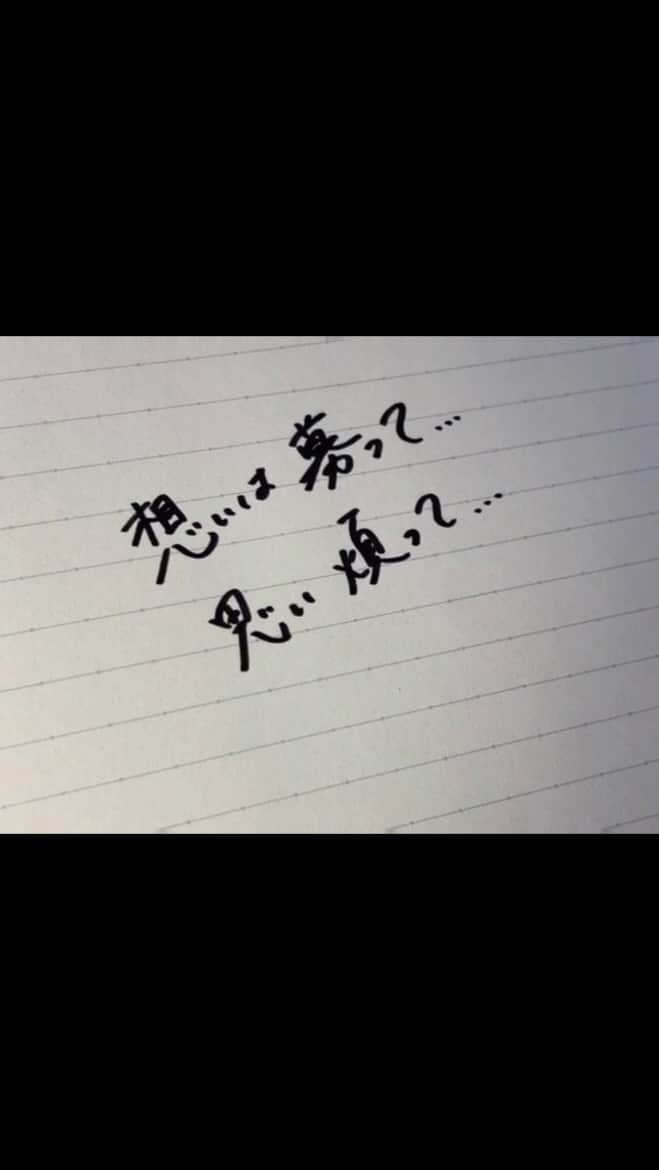 想いは募って…
思い煩って…